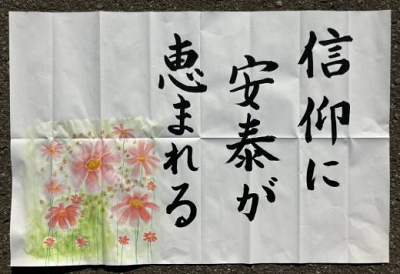 信仰に
安泰が
恵まれる